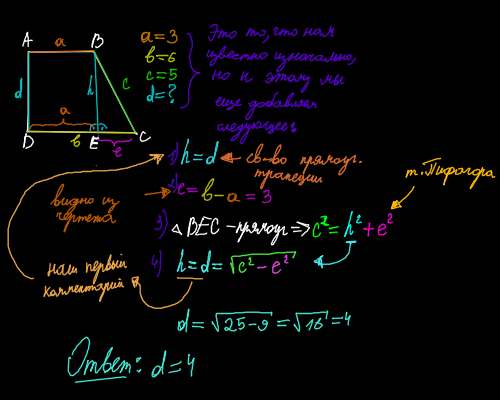 A a B
d h c
a
D в E e C
a = 3
в = 6
c = 5
d = ?
Это то, что нам
известно изначально,
но к этому мы
еще добавляем
следующее:
1) h = d ← св-во прямоуг.
трапеции
видно из
чертежа
2) e = в - a = 3
т. Пифагора
3) △BEC - прямоуг => c² = h² + e²
4) h = d = √c² - e²
наш первый
комментарий
d = √25 - 9 = √16 = 4
Ответ: d = 4